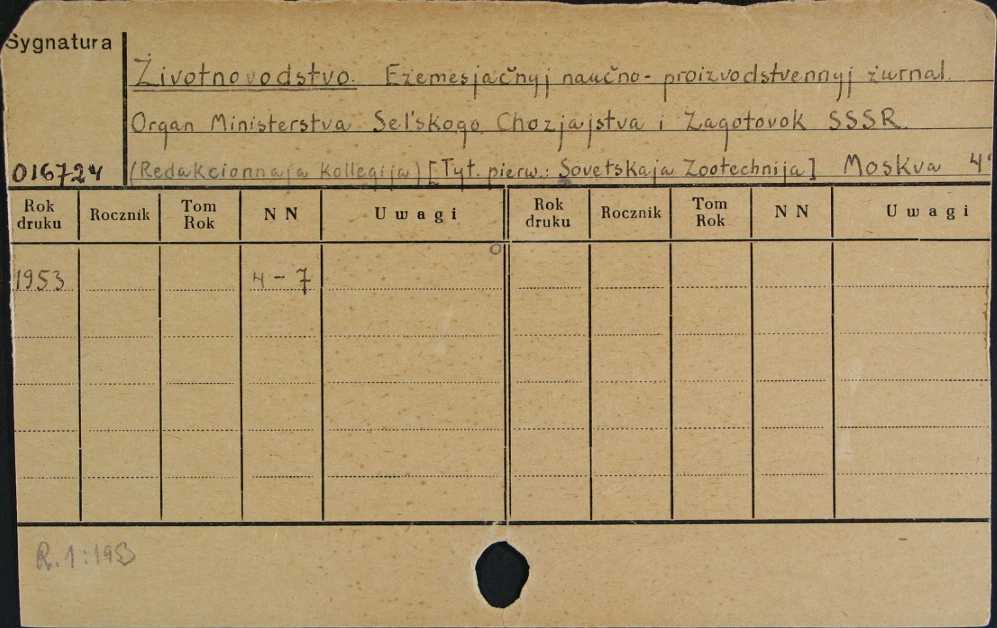 Sygnatura
Životnovodstvo. Ežemesjačnyj naučno-proizvodstvennyj žurnal.
Organ Ministerstva Sel'skogo Chozjajstva i Zagotovok SSSR.
016724 (Redakcionnaja Kollegija) [Tyt. pierw.: Sovetskaja Zootechnija] Moskva 4°
Rok druku Rocznik Tom Rok NN Uwagi Rok druku Rocznik Tom Rok NN Uwagi
1953 4-7
R.1:1953